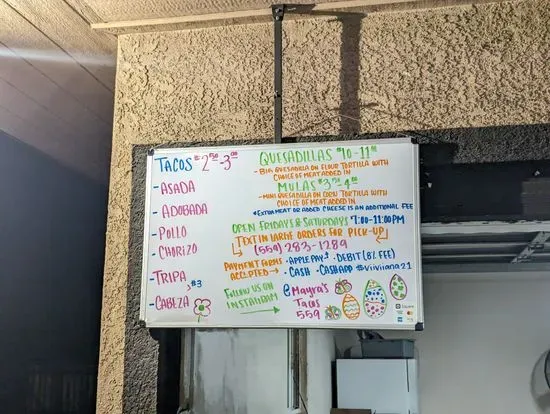 TACOS $2.50-3.00
- ASADA
- ADOBADA
- POLLO
- CHORIZO
- TRIPA
- CABEZA $3
QUESADILLAS $10-11.00
- BIG QUESADILLA ON FLOUR TORTILLA WITH
CHOICE OF MEAT ADDED IN
MULAS $3.50-4.00
- MINI QUESADILLA ON CORN TORTILLA WITH
CHOICE OF MEAT ADDED IN
*EXTRA MEAT OR ADDED CHEESE IS AN ADDITIONAL FEE
OPEN FRIDAYS & SATURDAYS 7:00-11:00PM
TEXT IN LARGE ORDERS FOR PICK-UP
(559) 283-1289
PAYMENT FORMS - APPLE PAY · DEBIT (8% FEE)
ACCEPTED → - CASH - CASHAPP
FOLLOW US ON
INSTAGRAM
@Mayra's
Tacos
559